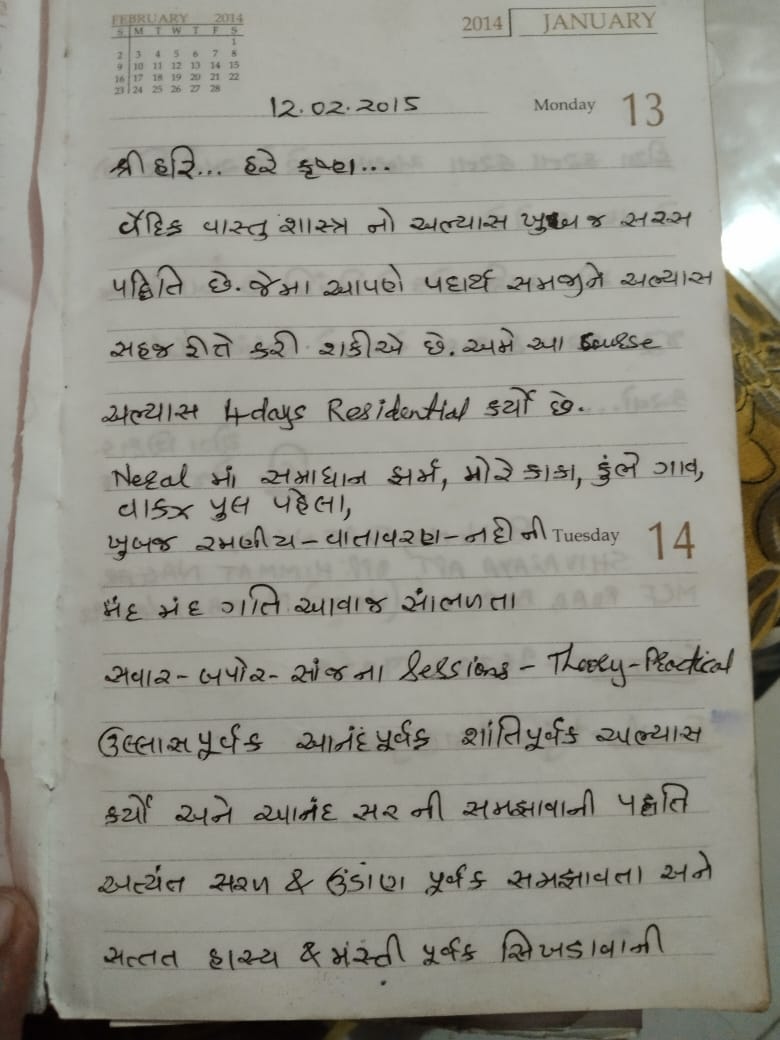 FEBRUARY 2014
S M T W T F S
1
2 3 4 5 6 7 8
9 10 11 12 13 14 15
16 17 18 19 20 21 22
23 24 25 26 27 28
2014 JANUARY
12.02.2015 Monday 13
શ્રી હરિ... હરે કૃષ્ણ...
વૈદિક વાસ્તુ શાસ્ત્ર નો અભ્યાસ ખુબ જ સરસ
પદ્ધિતિ છે. જેમા આપણે પદાર્થ સમજીને અભ્યાસ
સહજ રીતે કરી શકીએ છે. અમે આ course
અભ્યાસ 4 days Residential કર્યો છે.
Neral માં સમાધાન ફાર્મ, મોરે કાકા, કુંભે ગાવ,
પુલ પહેલા,
ખુબજ રમણીય - વાતાવરણ - નદી ની Tuesday 14
મંદ મંદ ગતિ આવાજ સાંભળતા
સવાર - બપોર - સાંજ ના Sessions - Theory - Practical
ઉલ્લાસપૂર્વક આનંદપૂર્વક શાંતિપૂર્વક અભ્યાસ
કર્યો અને આનંદ સર ની સમઝાવાની પદ્ધતિ
અત્યંત સરળ & ઉંડાણ પૂર્વક સમઝાવતા અને
સત્તત હાસ્ય & મસ્તી પૂર્વક સિખડાવાની